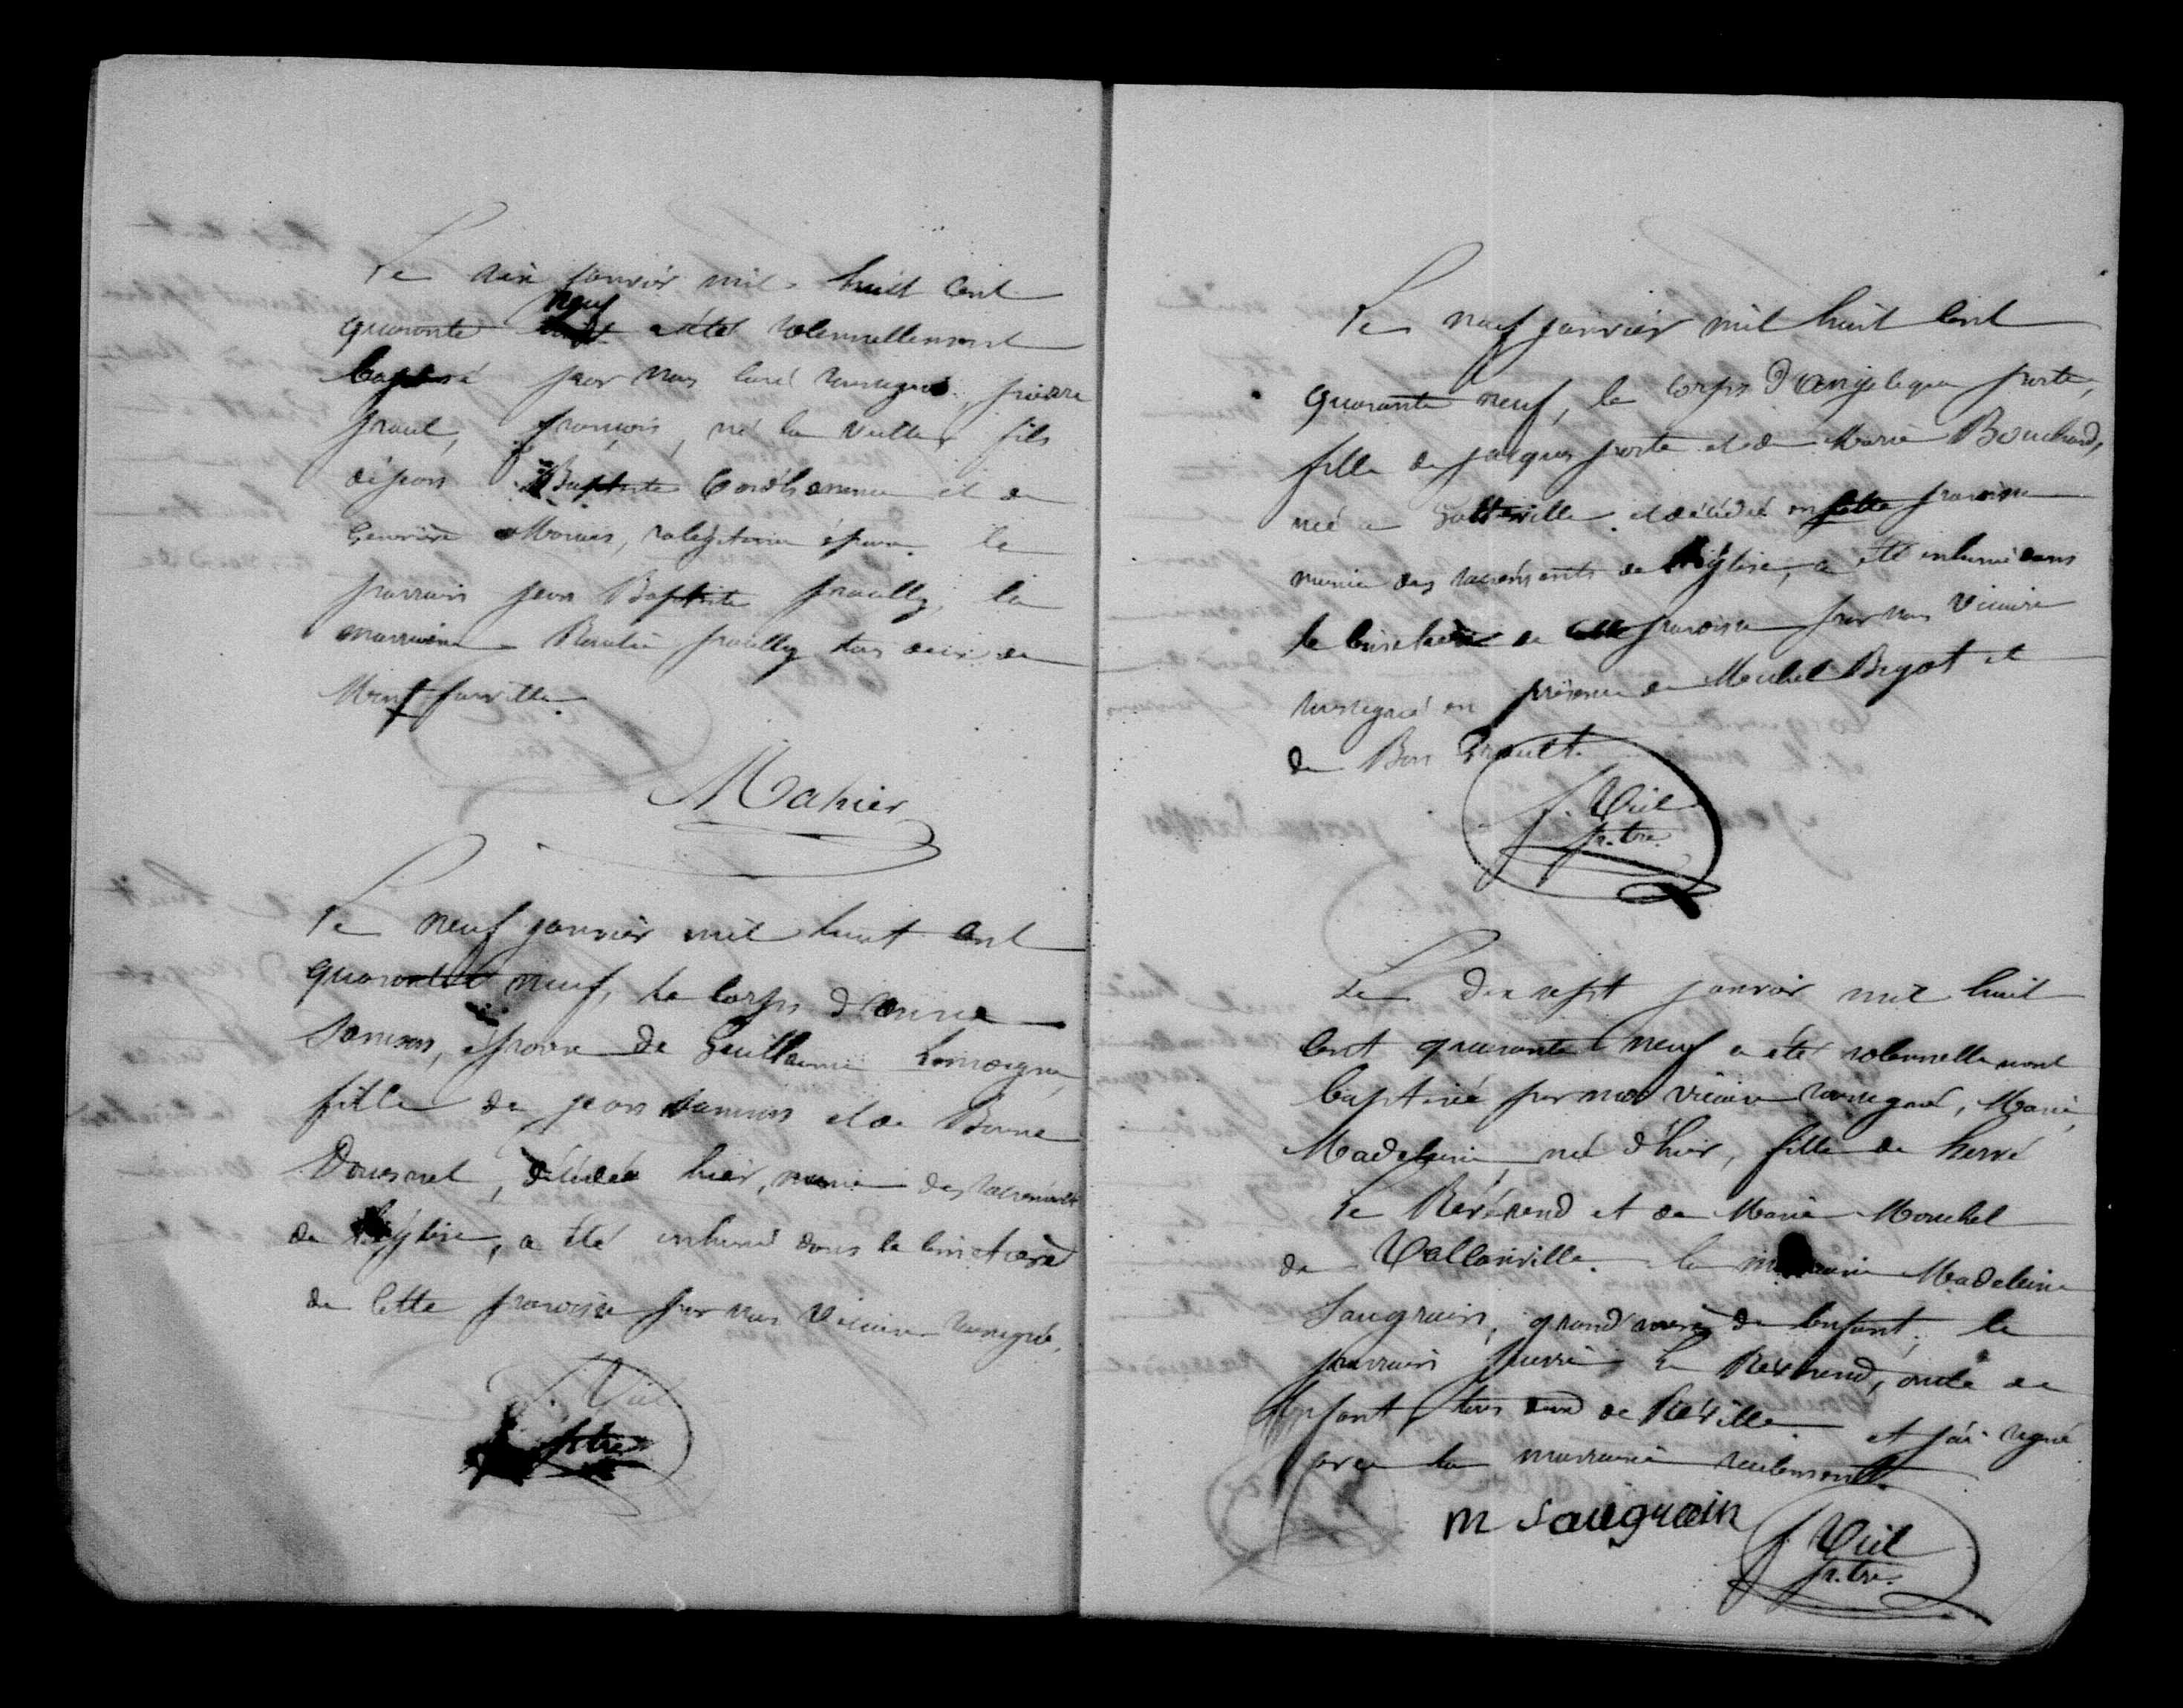 Le six janvier mil huit cent
quarante neuf a été solennellement
baptisé par nous curé soussigné, pierre
paul, françois, né la veille, fils
de jean Baptiste Cordhomme et de
Geneviève, sa légitime épouse. le
parrain jean Baptiste pouilly, la
marraine Rosalie pouilly tous deux de
Montfarville.
Mahier
Le neuf janvier mil huit cent
quarante neuf, le corps d'anne
Samson, épouse de Guillaume
fille de jean Samson et de Bonne
Dousnel, décédée hier, munie des sacrements
de l'église, a été inhumé dans le cimetière
de cette paroisse par nous vicaire soussigné.
f. Viel
ptre
Le neuf janvier mil huit cent
quarante neuf, le corps d'angélique porte,
fille de jacques porte et de Marie Bouchard,
née à Gatteville et décédée en cette paroisse
munie des sacrements de l'église, a été inhumé dans
le cimetière de cette paroisse par nous vicaire
soussigné en présence de Michel Bigot et
de Bon
f. Viel
p.tre.
Le dix sept janvier mil huit
cent quarante neuf a été solennellement
baptisée par nous vicaire soussigné, Marie
Madeleine, née d'hier, fille de hervé
Le Révérend et de Marie Mouchel
de Vallonville. la marraine Madeleine
Saugrain, grand'mère de l'enfant, le
parrain pierre Le Révérend, oncle de
l'enfant, tous deux de Réville. et j'ai signé
avec la marraine seulement.
m saugrain
f. Viel
p.tre.